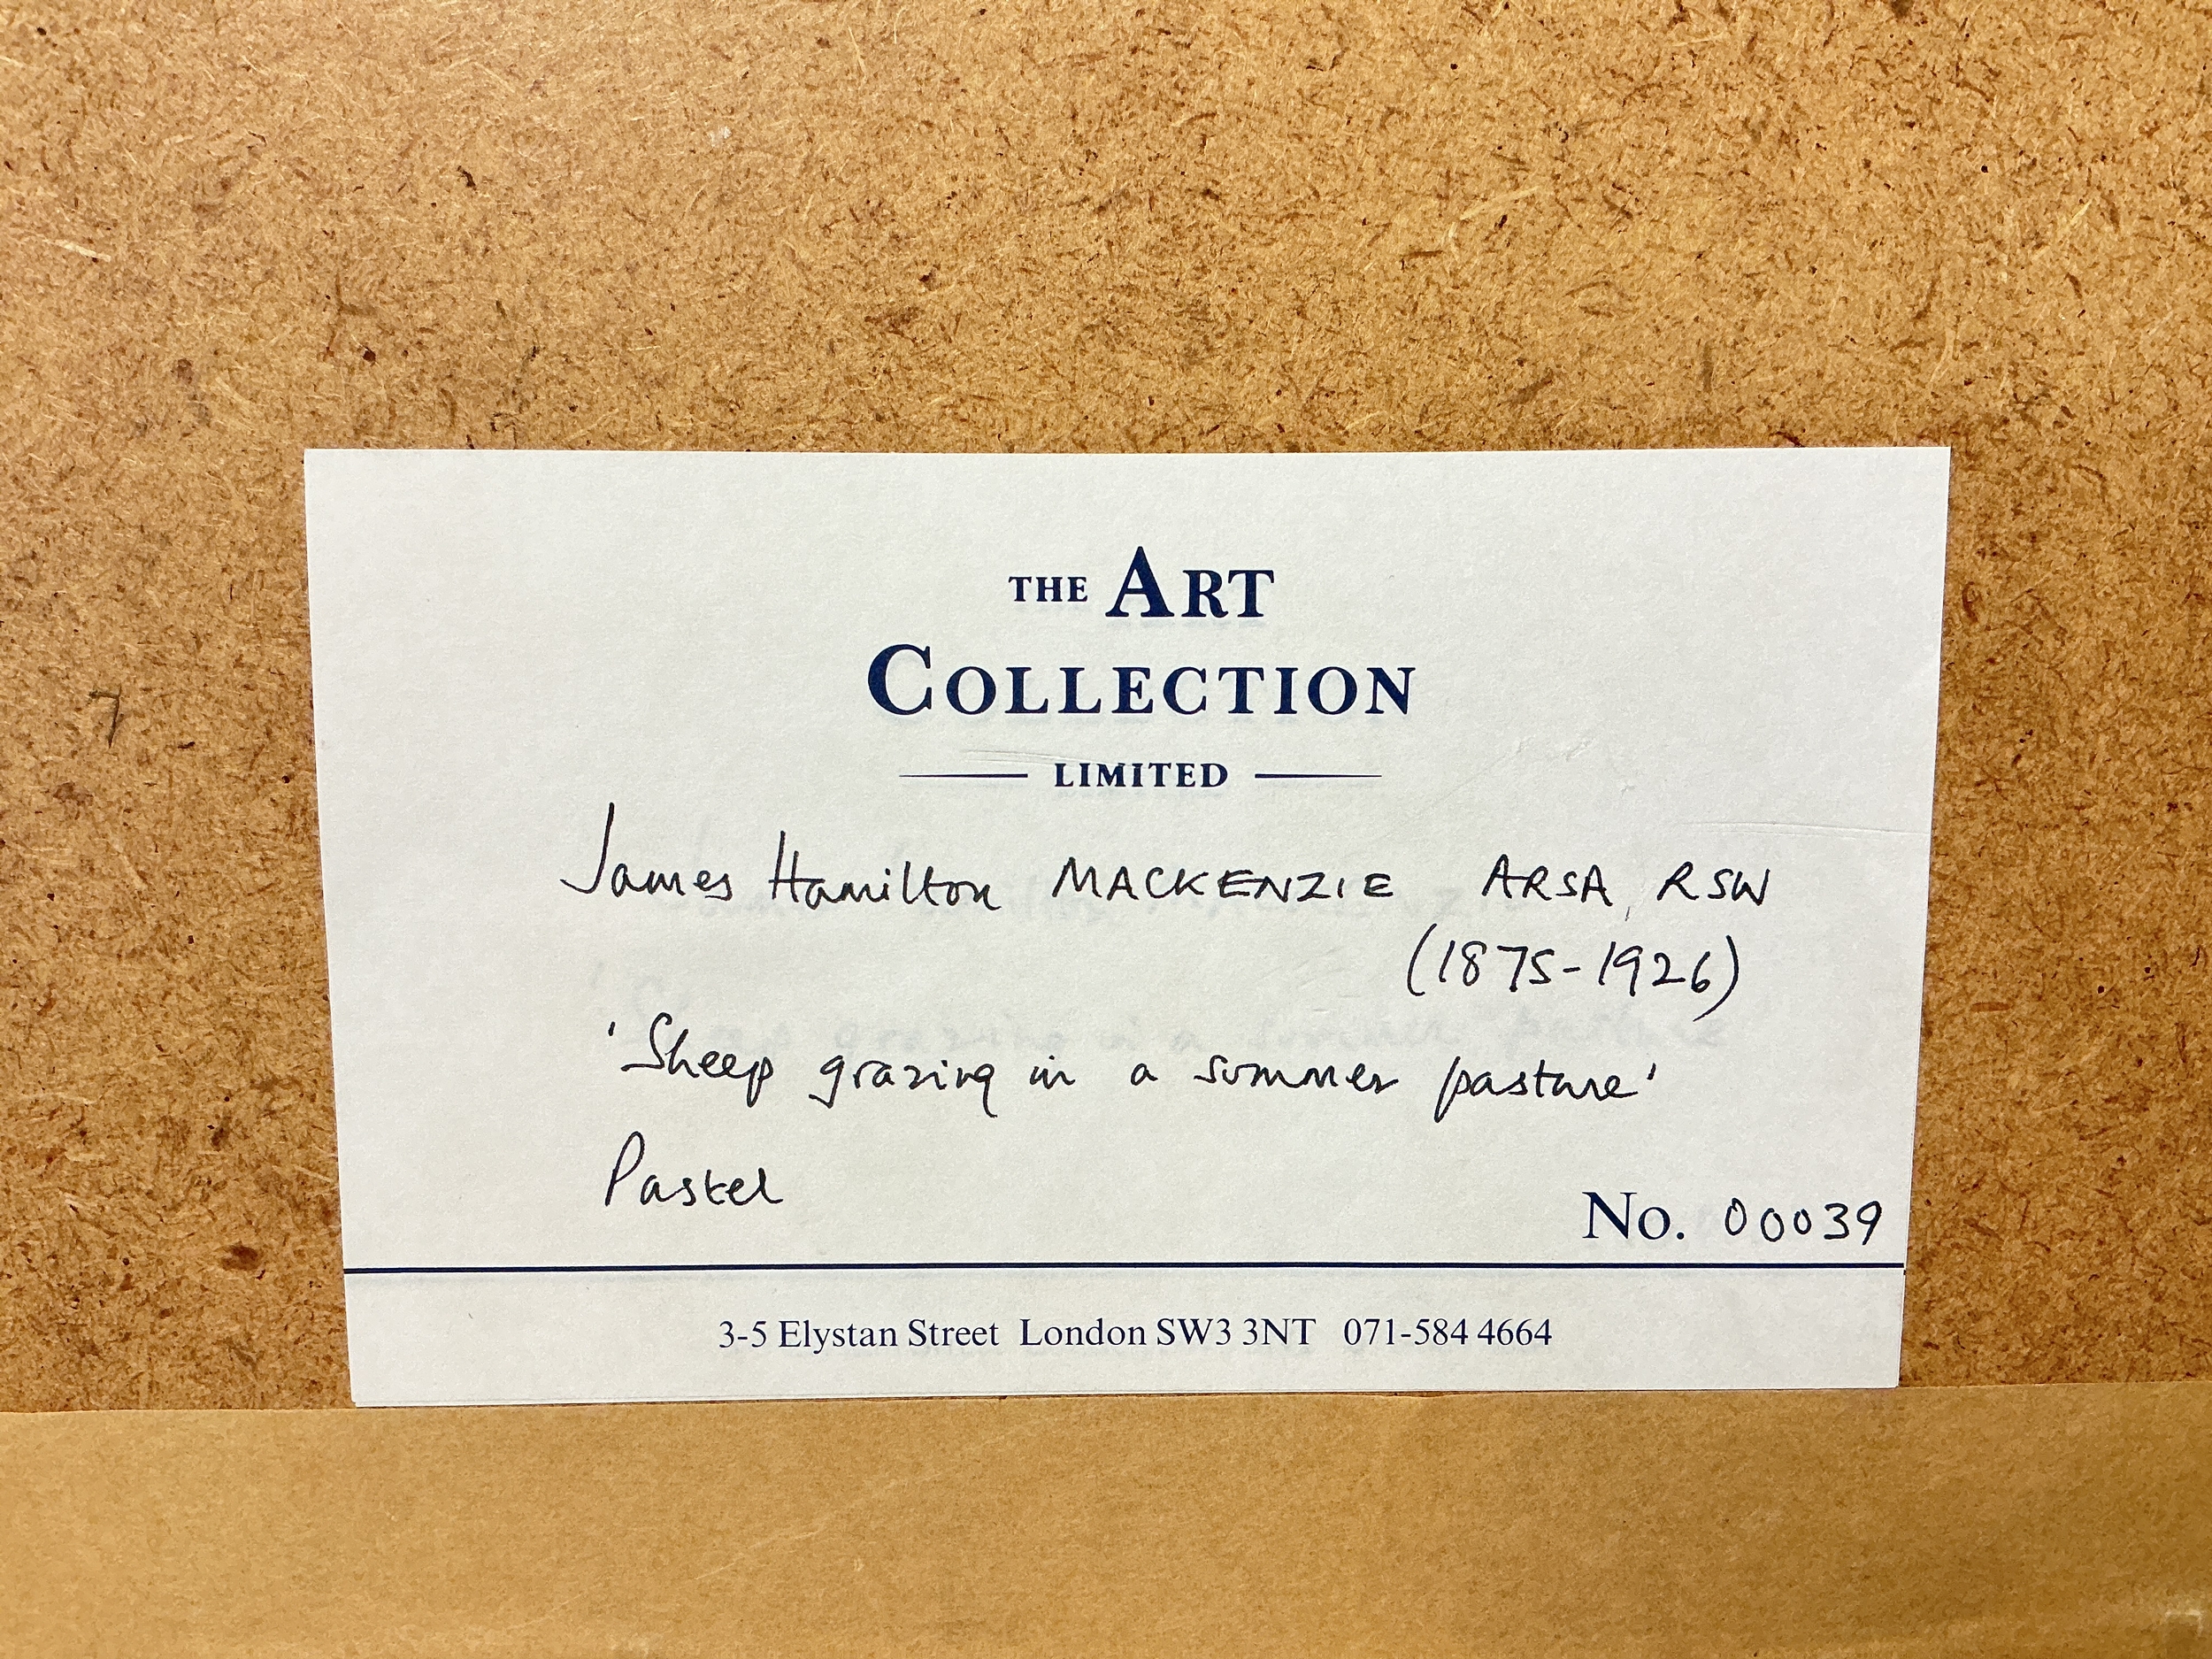 THE ART
COLLECTION
LIMITED
James Hamilton MACKENZIE ARSA, RSW
(1875-1926)
'Sheep grazing in a summer pasture'
Pastel
No. 00039
3-5 Elystan Street London SW3 3NT 071-584 4664